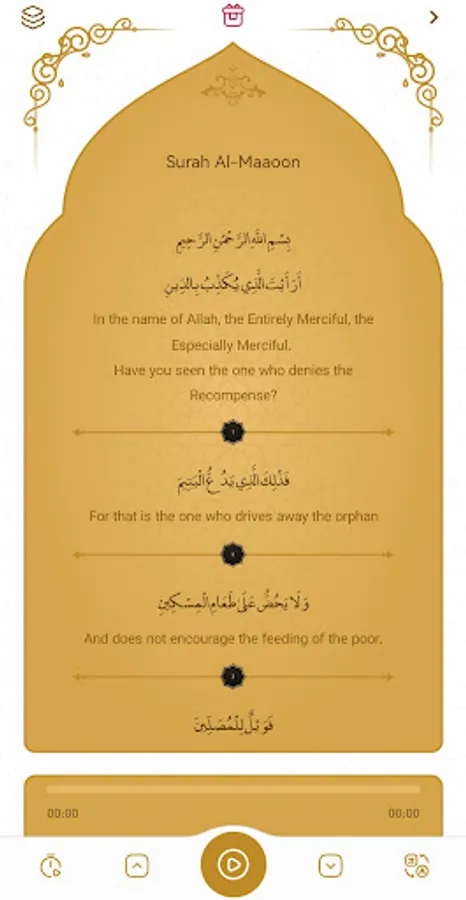 Surah Al-Maaoon
بِسْمِ اللَّهِ الرَّحْمَٰنِ الرَّحِيمِ
أَرَأَيْتَ الَّذِي يُكَذِّبُ بِالدِّينِ
In the name of Allah, the Entirely Merciful, the
Especially Merciful.
Have you seen the one who denies the
Recompense?
فَذَٰلِكَ الَّذِي يَدُعُّ الْيَتِيمَ
For that is the one who drives away the orphan
وَلَا يَحُضُّ عَلَىٰ طَعَامِ الْمِسْكِينِ
And does not encourage the feeding of the poor.
فَوَيْلٌ لِّلْمُصَلِّينَ
00:00
00:00